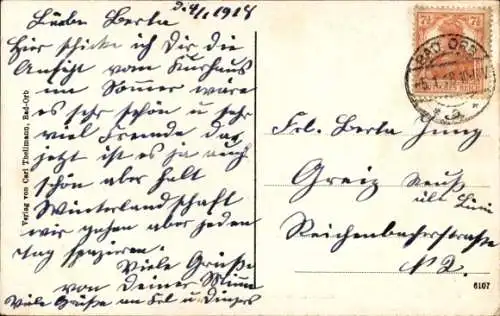 d. 4/1 1918
Liebe Berta
Hir schicke ich Dir die
Ansicht vom Kurhaus
im Sommer ware
es sehr schön u sehr
viel Fremde da,
jetzt ist es ja auch
schön aber halt
Winterlandschaft
wir gehen aber jeden
tag spazieren.
Viele Grüße
von Deiner
Viele Grüße an
Verlag von Carl Theilmann, Bad-Orb
7½ 7½
BAD ORB
Frl. Berta Jung
Greiz Reuß
Reichenbacherstrasse
N 2.
6107